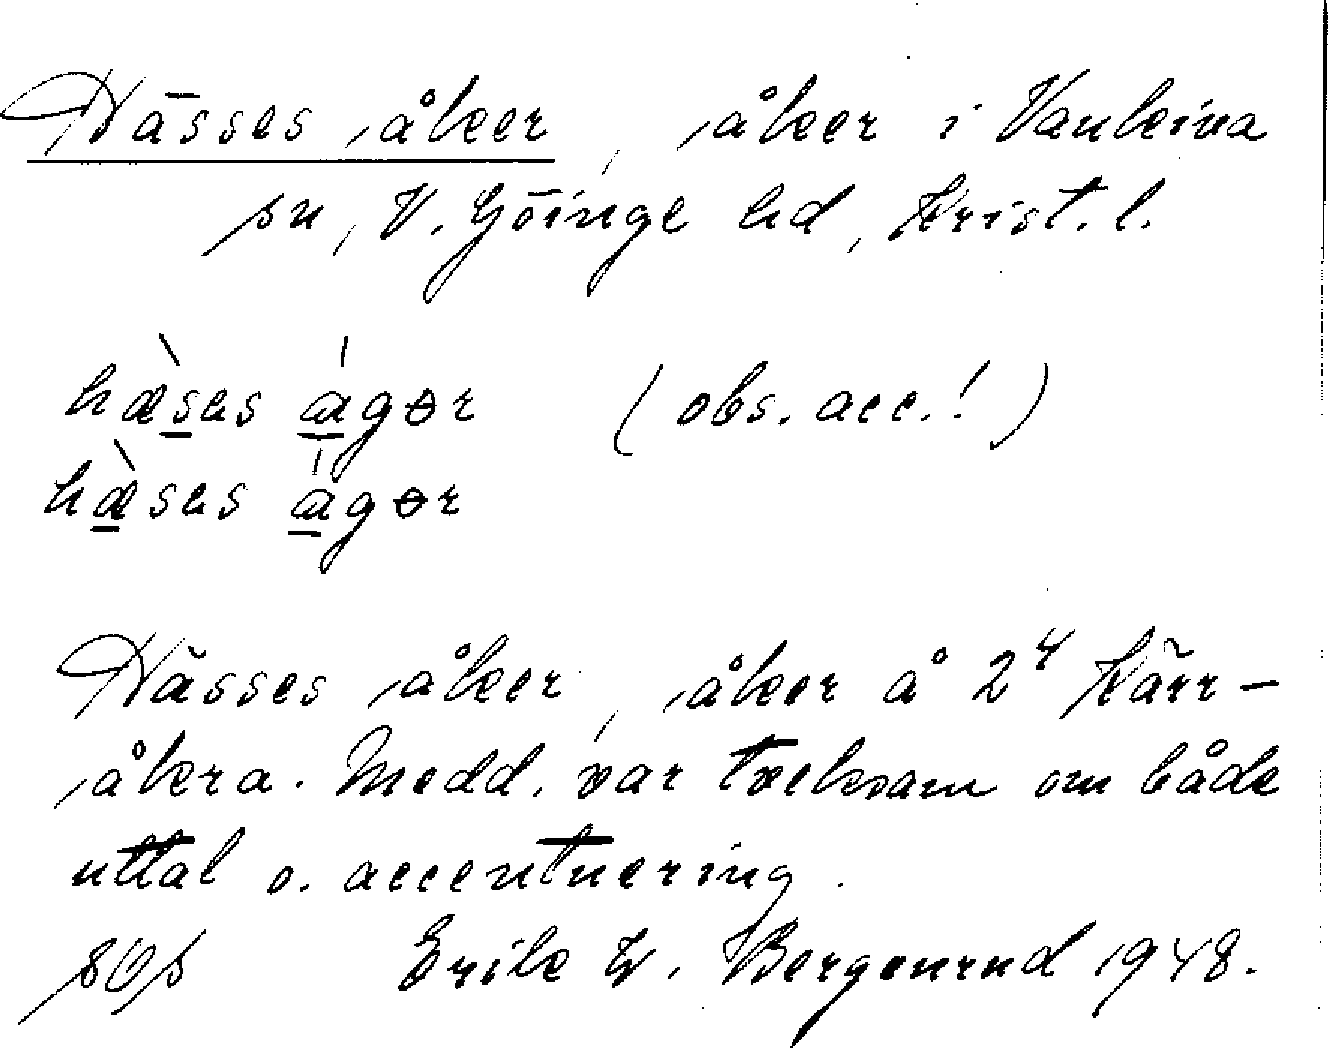 Hässes åker, åker i Vankiva
sn, V. Göinge hd, Krist. l.
hæ̀ses ágər (obs. acc.!)
hæ̀ses ágər
Hässes åker, åker å 2⁴ Kärr-
åkra. Medd. var tveksam om både
uttal o. accentuering.
Erik G. Bergenrud 1948.